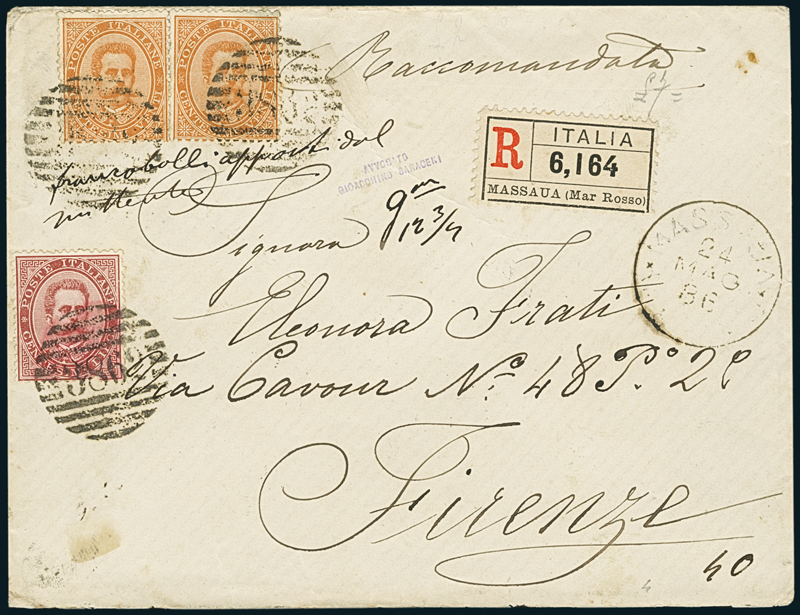 POSTE ITALIANE POSTE ITALIANE
Raccomandata
R ITALIA
6,164
MASSAUA (Mar Rosso)
francobolli appost dal
mittente
AVVOCATO
GIOACCHINO SARACENI
Signora
gm
12 3/4
MASSAUA
24
MAG
86
POSTE ITALIANE
Eleonora Frati
Via Cavour No. 48 P.o 2o
Firenze
40